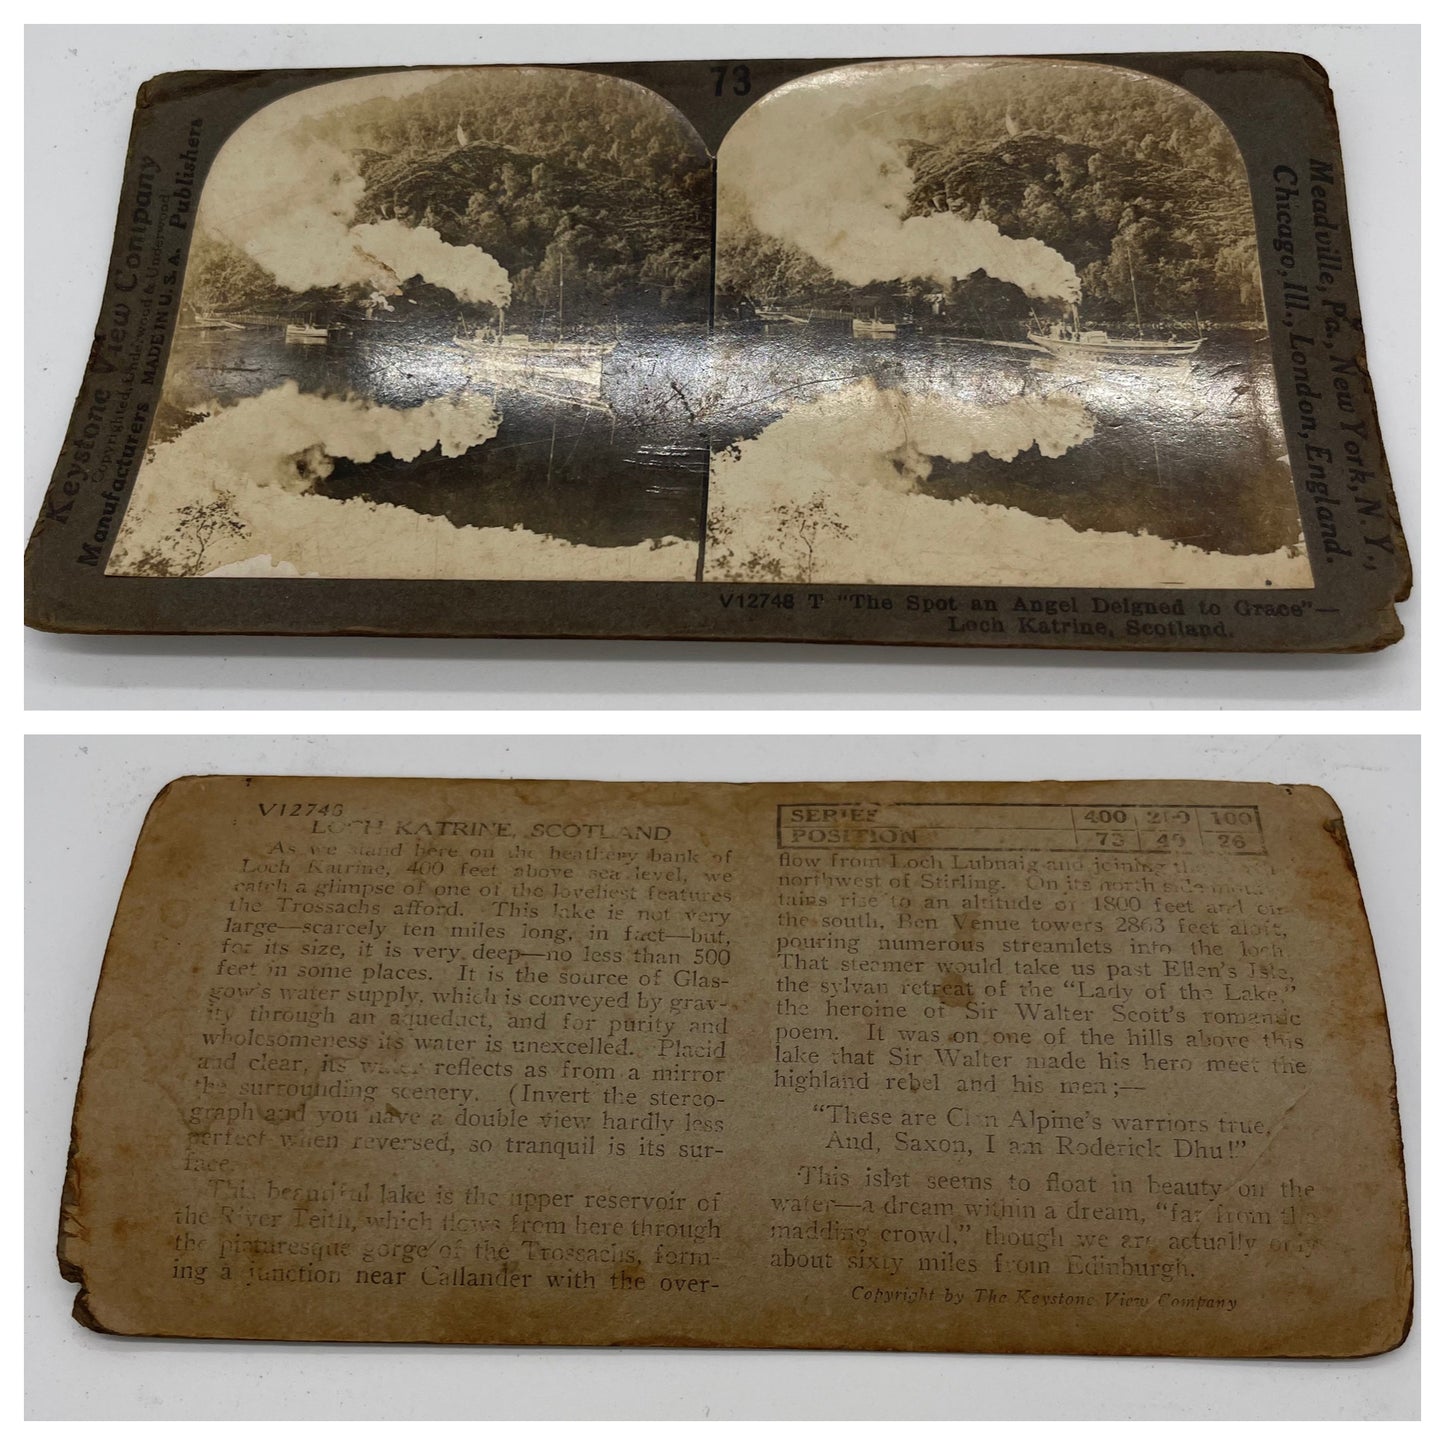 73
Keystone View Company
Copyrighted, Underwood & Underwood
Manufacturers MADE IN U.S.A. Publishers
Meadville, Pa., New York, N. Y.,
Chicago, Ill., London, England.
V12748 T "The Spot an Angel Deigned to Grace"—
Loch Katrine, Scotland.
V12748
LOCH KATRINE, SCOTLAND
As we stand here on the heathery bank of
Loch Katrine, 400 feet above sea level, we
catch a glimpse of one of the loveliest features
the Trossachs afford. This lake is not very
large—scarcely ten miles long, in fact—but,
for its size, it is very deep—no less than 500
feet in some places. It is the source of Glas-
gow's water supply, which is conveyed by grav-
ity through an aqueduct, and for purity and
wholesomeness its water is unexcelled. Placid
and clear, its water reflects as from a mirror
the surrounding scenery. (Invert the stereo-
graph and you have a double view hardly less
perfect when reversed, so tranquil is its sur-
face.
This beautiful lake is the upper reservoir of
the River Teith, which flows from here through
the picturesque gorge of the Trossachs, form-
ing a junction near Callander with the over-
SERIES 400 200 100
POSITION 73 49 26
flow from Loch Lubnaig and joining the
northwest of Stirling. On its north side moun-
tains rise to an altitude of 1800 feet and on
the south, Ben Venue towers 2863 feet aloft,
pouring numerous streamlets into the loch.
That steamer would take us past Ellen's Isle,
the sylvan retreat of the "Lady of the Lake,"
the heroine of Sir Walter Scott's romantic
poem. It was on one of the hills above this
lake that Sir Walter made his hero meet the
highland rebel and his men;—
"These are Clan Alpine's warriors true,
And, Saxon, I am Roderick Dhu!"
This islet seems to float in beauty on the
water—a dream within a dream, "far from the
madding crowd," though we are actually only
about sixty miles from Edinburgh.
Copyright by The Keystone View Company